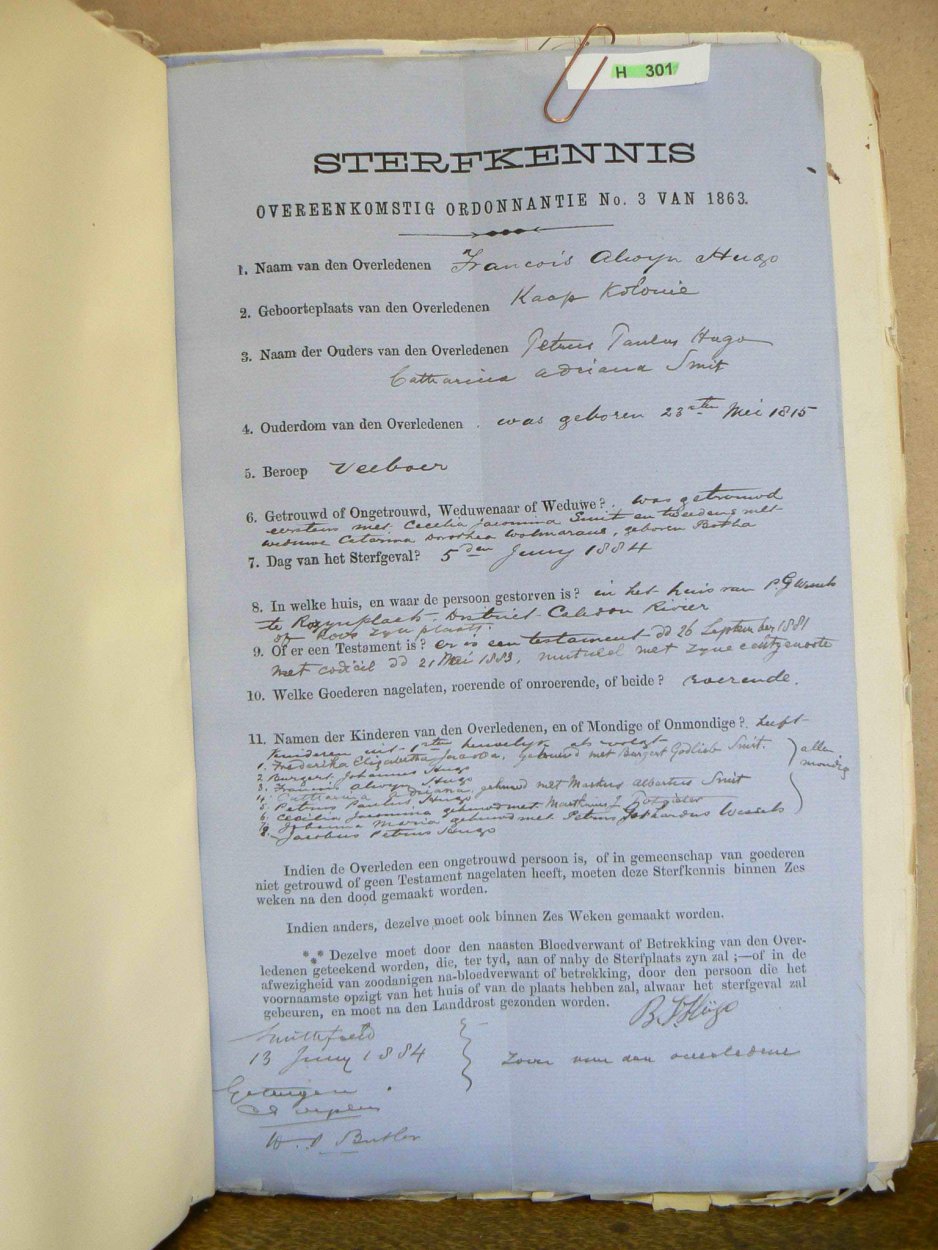 H 301
STERFKENNIS
OVEREENKOMSTIG ORDONNANTIE No. 3 VAN 1863.
1. Naam van den Overledenen Francois Alwyn Hugo
2. Geboorteplaats van den Overledenen Kaap Kolonie
3. Naam der Ouders van den Overledenen Petrus Paulus Hugo
Catharina Adriana Smit
4. Ouderdom van den Overledenen was geboren 23sten Mei 1815
5. Beroep Veeboer
6. Getrouwd of Ongetrouwd, Weduwenaar of Weduwe? was getrouwd
eerstens met Cecilia Jacomina Smit en tweedens met
weduwe Catarina Dorothea Wolmarans, geboren Botha
7. Dag van het Sterfgeval? 5den Juny 1884
8. In welke huis, en waar de persoon gestorven is? in het huis van P G Wessels
te Rozynplaats District Caledon Rivier
of Roos zyn plaats.
9. Of er een Testament is? er is een testament dd 26 September 1881
met codicil dd 21 Mei 1883, mutueel met zyne echtgenoote
10. Welke Goederen nagelaten, roerende of onroerende, of beide? roerende.
11. Namen der Kinderen van den Overledenen, en of Mondige of Onmondige? heeft
Kinderen uit 1sten huwelyk als volgt
1. Frederika Elizabetha Jacoba, getrouwd met Burgert Godlieb Smit.
2. Burgert Johannes Hugo
3. Francois Alwyn Hugo
4. Catharina Adriana gehuwd met Markus Albertus Smit
5. Petrus Paulus Hugo
6. Cecilia Jacomina gehuwd met Marthinus Potgieter
7. Johanna Maria gehuwd met Petrus Gerhardus Wessels
8. Jacobus Petrus Hugo
allen
mondig
Indien de Overleden een ongetrouwd persoon is, of in gemeenschap van goederen
niet getrouwd of geen Testament nagelaten heeft, moeten deze Sterfkennis binnen Zes
weken na den dood gemaakt worden.
Indien anders, dezelve moet ook binnen Zes Weken gemaakt worden.
*** Dezelve moet door den naasten Bloedverwant of Betrekking van den Over-
ledenen geteekend worden, die, ter tyd, aan of naby de Sterfplaats zyn zal ;—of in de
afwezigheid van zoodanigen na-bloedverwant of betrekking, door den persoon die het
voornaamste opzigt van het huis of van de plaats hebben zal, alwaar het sterfgeval zal
gebeuren, en moet na den Landdrost gezonden worden.
B J Hugo
Smithfield
13 Juny 1884
zoon van den overledene
Getuigen
W. S Butler